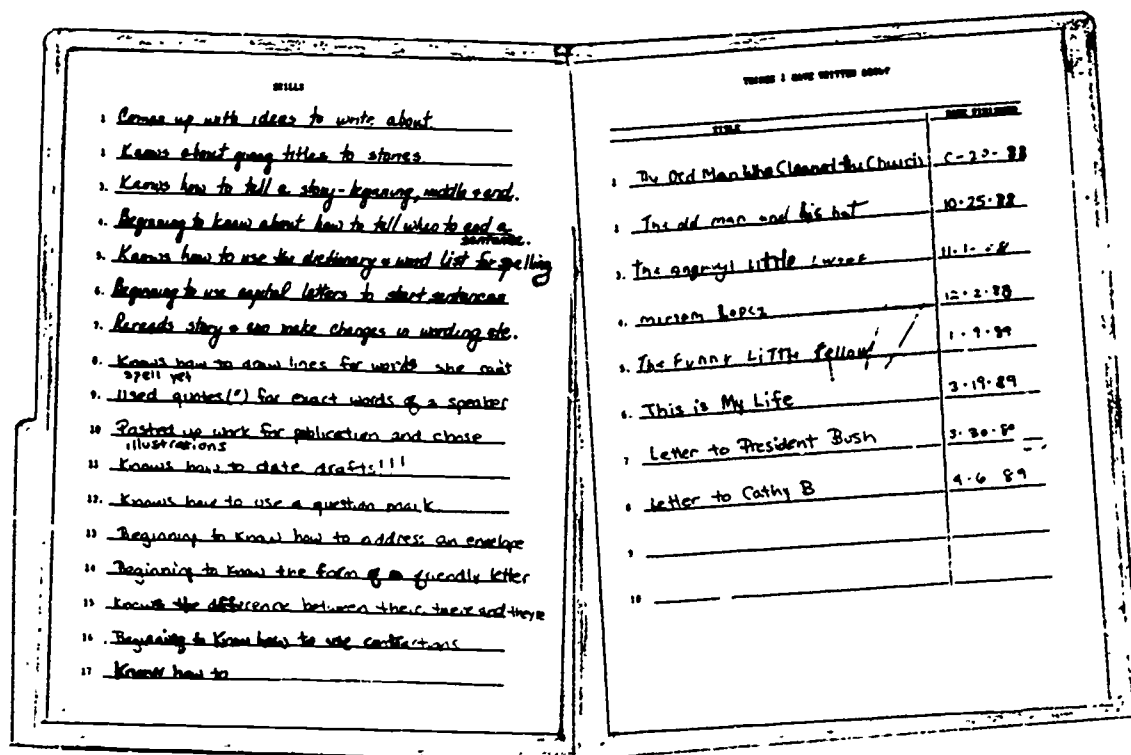 SKILLS
1. Comes up with ideas to write about.
2. Knows about giving titles to stories
3. Knows how to tell a story - beginning, middle + end.
4. Beginning to know about how to tell when to end a
sentence.
5. Knows how to use the dictionary + word list for spelling
6. Beginning to use capital letters to start sentences
7. Rereads story + can make changes in wording etc.
8. Knows how to draw lines for words she can't
spell yet
9. Used quotes (") for exact words of a speaker
10 Pasted up work for publication and chose
illustrations
11 Knows how to date drafts!!!
12. Knows how to use a question mark.
13 Beginning to know how to address an envelope
14 Beginning to know the form of a friendly letter
15 Knows the difference between their, there and they're
16. Beginning to know how to use contractions
17 Knows how to
THINGS I HAVE WRITTEN ABOUT
TITLE DATE FINISHED
1 The Old Man Who Cleaned the Church 88
2 The old man and his hat 10-25-88
3. The little
4. Miriam Lopez 12-2-88
5. The Funny LiTTle fellow 1-9-89
6. This is My Life 3-19-89
7 Letter to President Bush
8 Letter to Cathy B 4-6 89
9
10